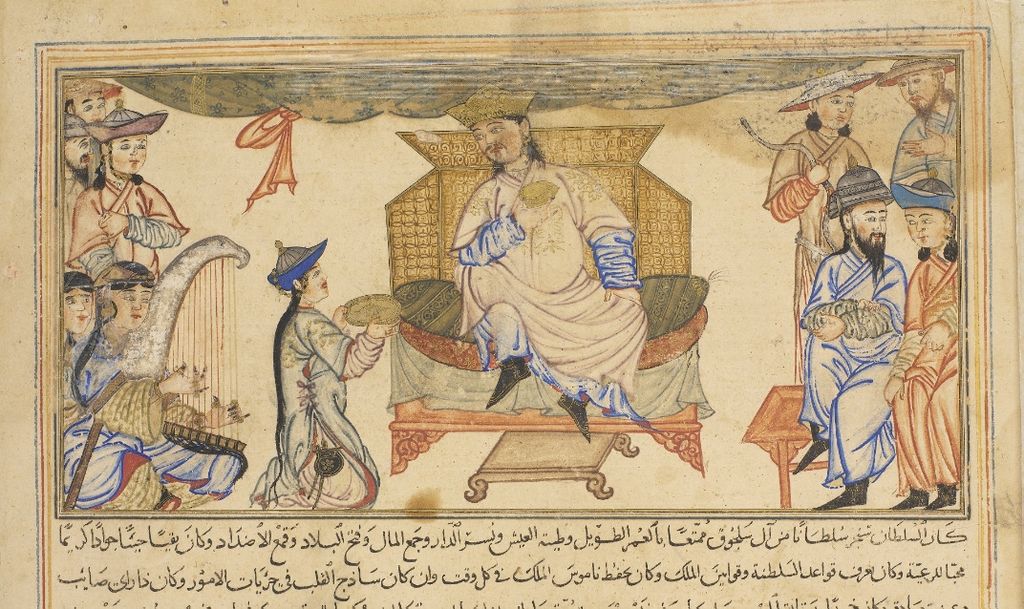 كان السلطان سنجر سلطانا من آل سلجوق ممتعا بالعمر الطويل وطيبة العيش وتيسر الدار وجمع المال وفتح البلاد وقمع الأضداد وكان بقيا حيتا جوادا كريما
محبا للرعية وكان يعرف قواعد السلطنة وقوانين الملك وكان يحفظ ناموس الملك في كل وقت وان كان ساذج القلب في جزيات الامور وكان ذا راي صايب